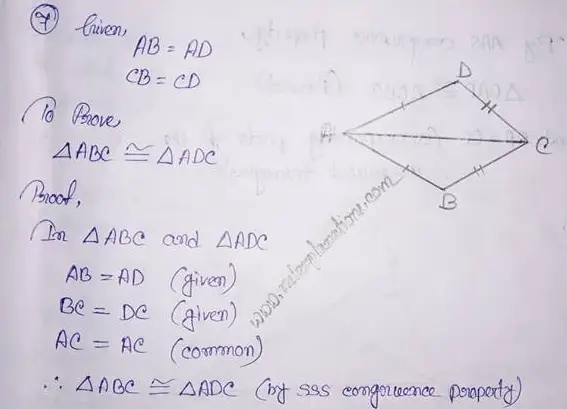 7
Given,
AB = AD
CB = CD
To Prove,
△ABC ≅ △ADC
Proof,
In △ABC and △ADC
AB = AD (given)
BC = DC (given)
AC = AC (common)
∴ △ABC ≅ △ADC (by SSS congruence property)
D
A
C
B